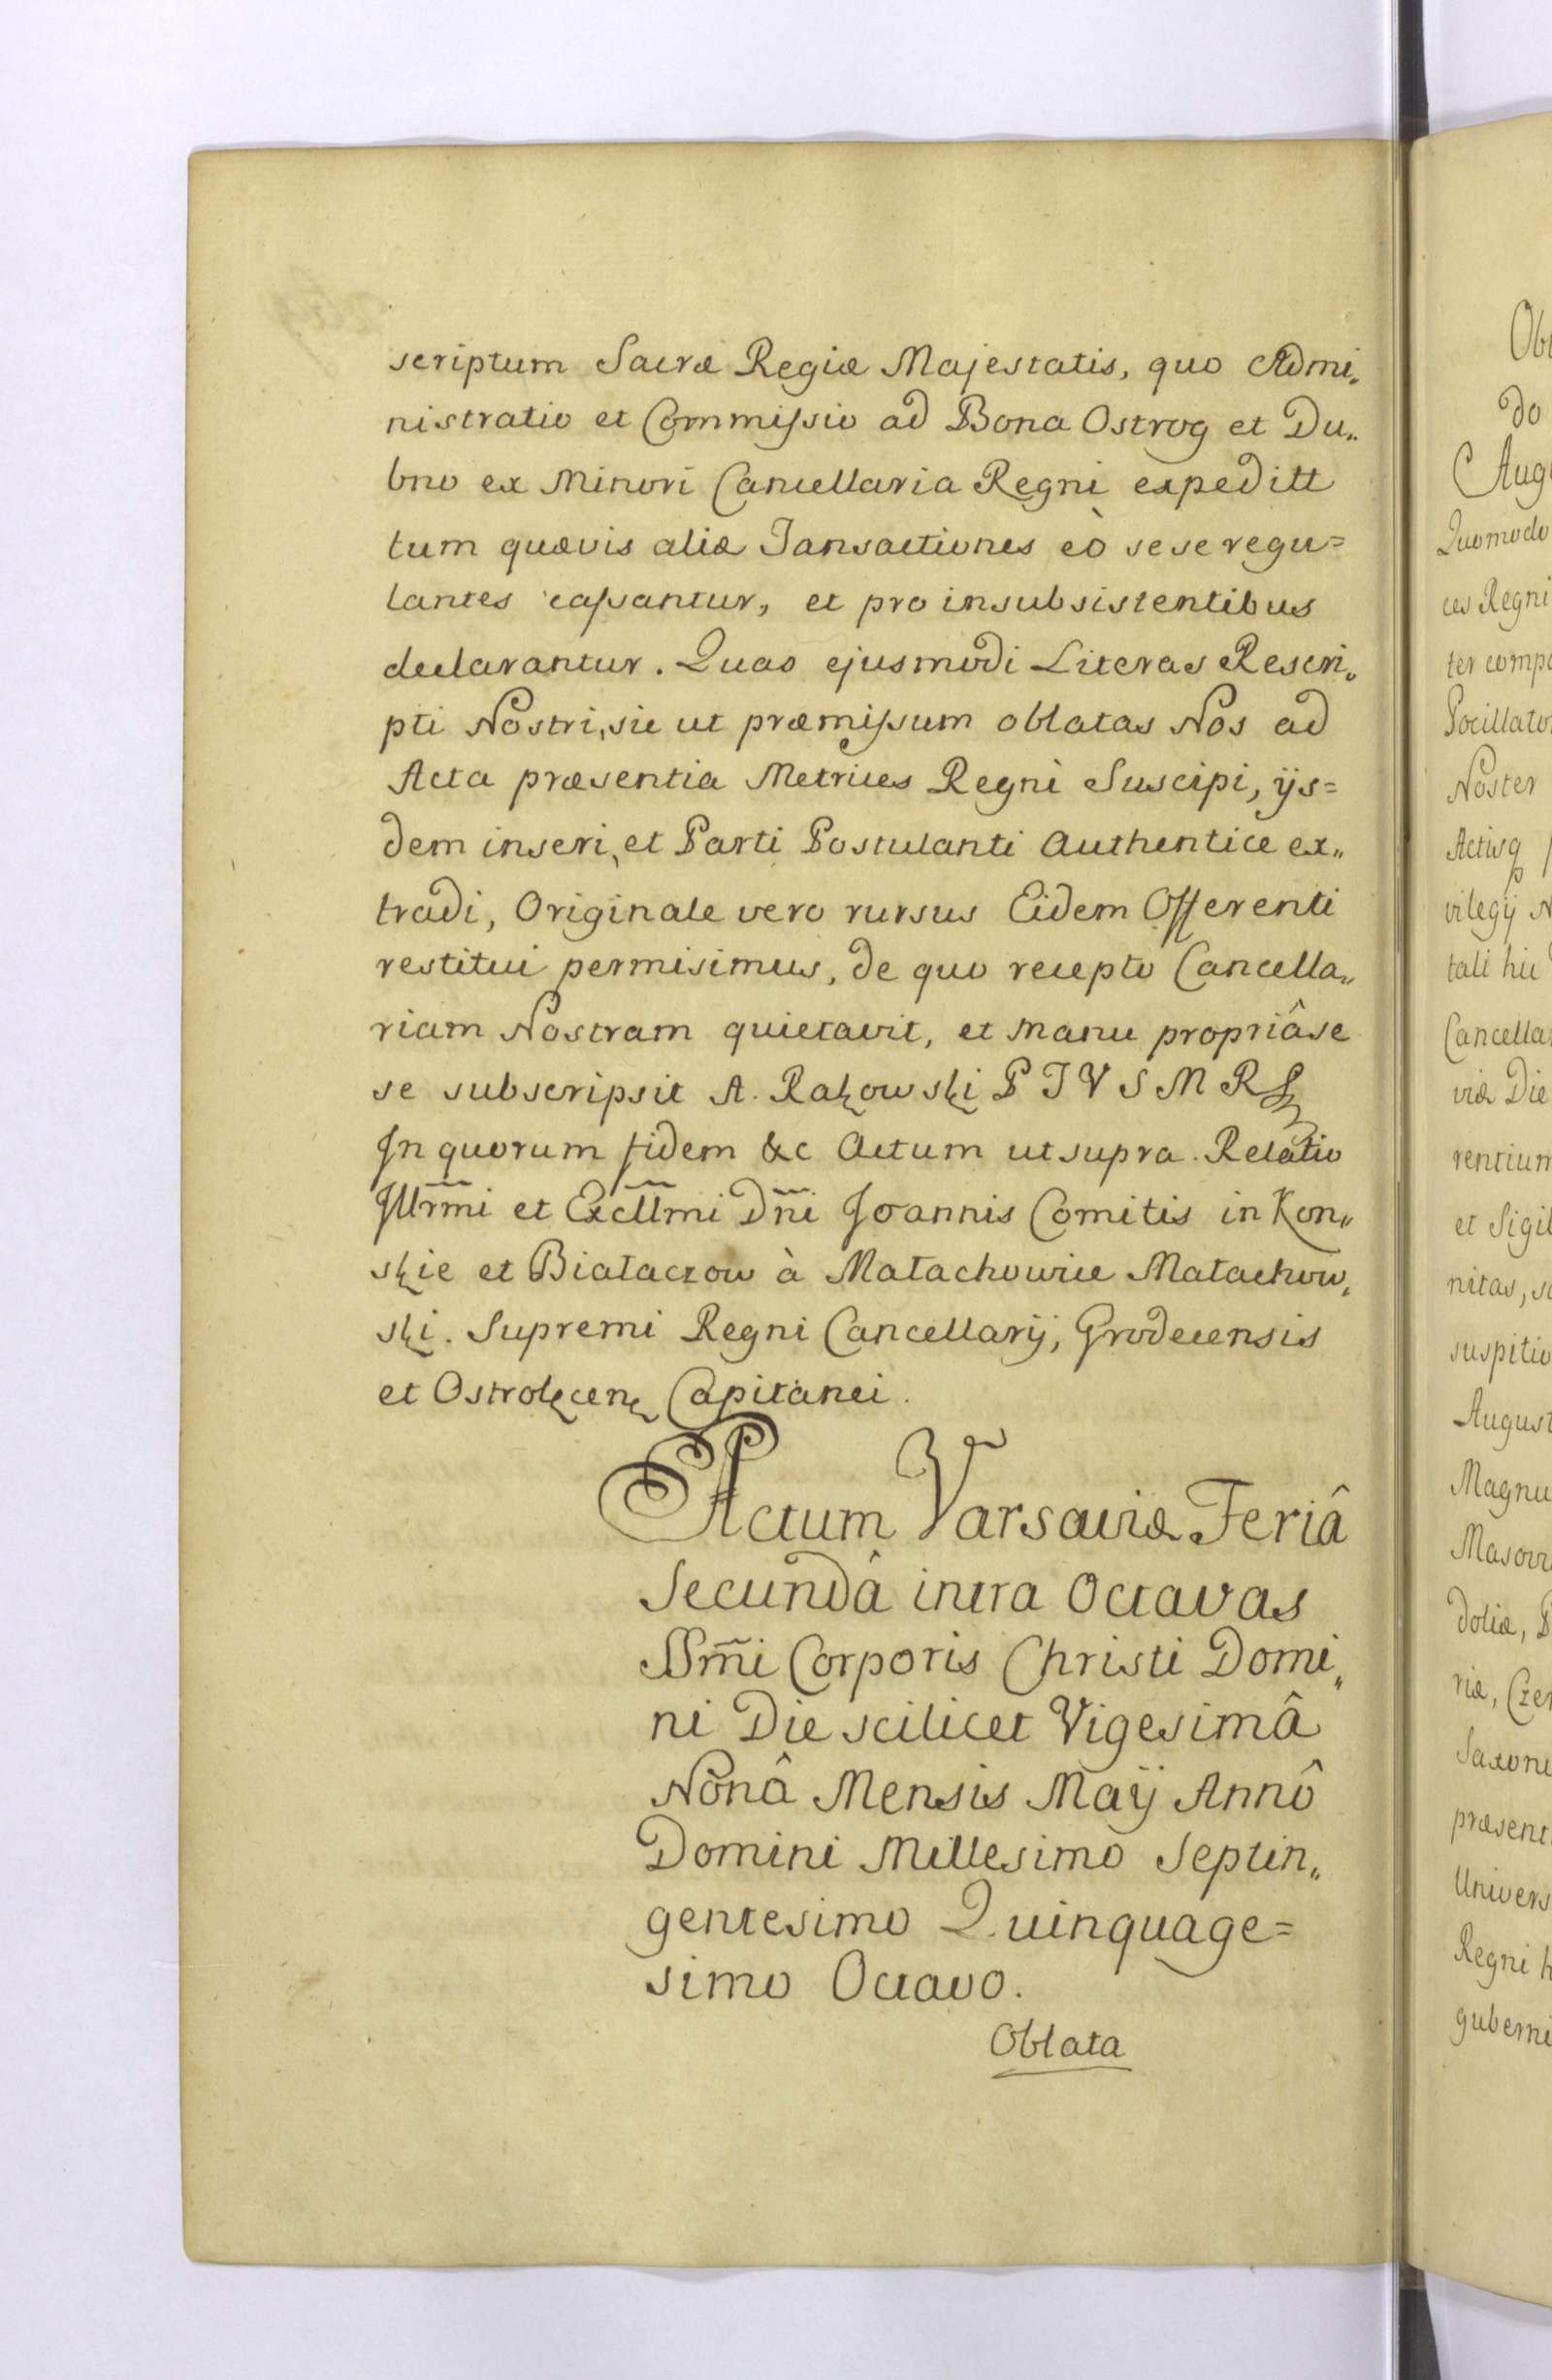 scriptum Sacræ Regiæ Majestatis, quo Admi„
nistratio et Commissio ad Bona Ostrog et Du„
bno ex Minori Cancellaria Regni expeditt
tum quævis aliæ Tansactiones eò sese regu=
lantes cassantur, et pro insubsistentibus
declarantur. Quas ejusmodi Literas Rescri„
pti Nostri, sic ut præmissum oblatas Nos ad
Acta præsentia Metrices Regni Suscipi, ijs=
dem inseri, et Parti Postulanti Authentice ex„
tradi, Originale vero rursus Eidem Offerenti
restitui permisimus, de quo recepto Cancella„
riam Nostram quietavit, et manu propriâ se
se subscripsit A. Rakowski P J V S M R
In quorum fidem &c Actum ut supra. Relatio
Jllrm̃i et Excll̃mi Dñi Joannis Comitis in Kon„
skie et Białaczow à Małachowice Małachow„
ski. Supremi Regni Cancellarij, Grodecensis
et Ostrołęcen Capitanei.
Actum Varsaviæ Feriâ
Secundâ intra Octavas
SSm̃i Corporis Christi Domi„
ni Die scilicet Vigesimâ
Nonâ Mensis Maij Annô
Domini Millesimo Septin„
gentesimo Quinquage=
simo Octavo.
Oblata
Obl
do
Aug
Quomodo
ces Regni
ter comp
Pocillato
Noster
Actisq
vilegij N
tali hic
Cancella
viæ Die
rentium
et Sigil
nitas, s
suspitio
August
Magnu
Masov
doliæ, P
riæ, Cze
Saxoni
præsent
Univers
Regni h
guberni